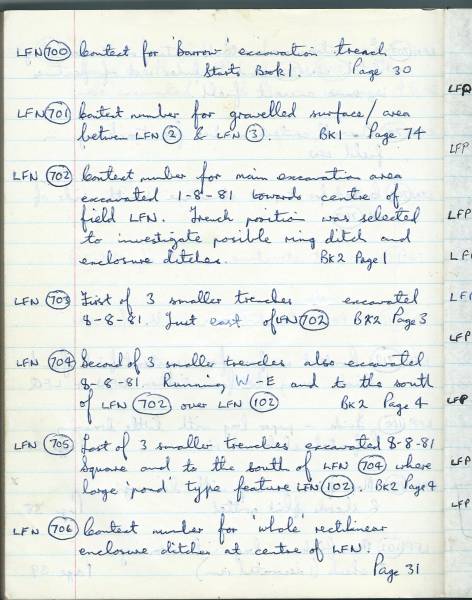 LFN 700 Context for 'Barrow' excavation trench
Starts Book 1. Page 30
LFN 701 Context number for gravelled surface/area
between LFN 2 & LFN 3. BK1 Page 74
LFN 702 Context number for main excavation area
excavated 1-8-81 towards centre of
field LFN. Trench position was selected
to investigate posible ring ditch and
enclosure ditches. BK2 Page 1
LFN 703 First of 3 smaller trenches excavated
8-8-81. Just east of LFN 702 BK2 Page 3
LFN 704 Second of 3 smaller trenches also excavated
8-8-81. Running W-E and to the south
of LFN 702 over LFN 102 BK2 Page 4
LFN 705 Last of 3 smaller trenches excavated 8-8-81
Square and to the south of LFN 704 where
large 'pond' type feature LFN 102. BK2 Page 4
LFN 706 Context number for 'whole' rectilinear
enclosure ditches at centre of LFN.
Page 31
LFP
LFP
LFP
LFP
LFP
LFP
LFP